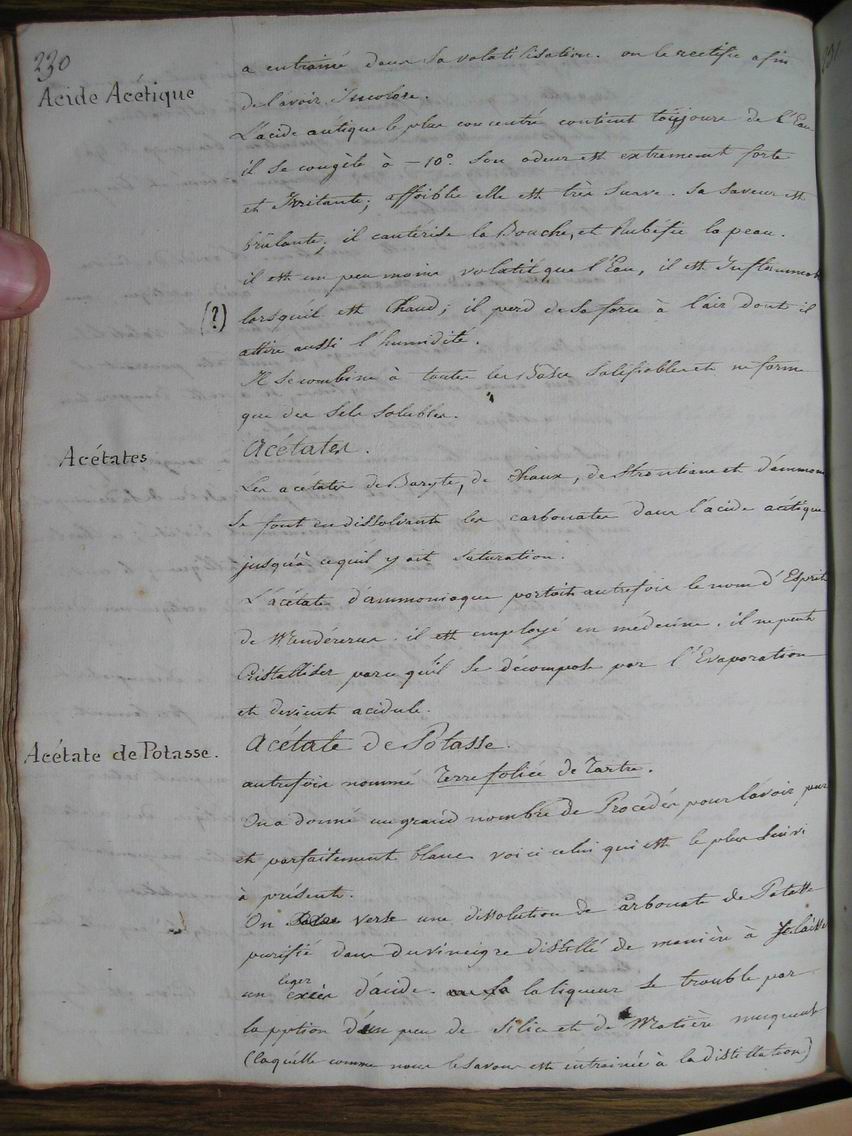 230
a entrainé dans sa volatilisation. on le rectifie afin
Acide Acétique
de l'avoir Incolore.
L'acide acétique le plus concentré contient toujours de l'Eau
il se congèle à -10°. Son odeur est extremement forte
et Irritante; affoiblie elle est très suave. Sa saveur est
brûlante; il cautérise la Bouche, et Rubéfie la peau.
il est un peu moins volatil que l'Eau, il est Inflammable
(?) lorsqu'il est Chaud; il perd de sa force à l'air dont il
attire aussi l'humidité.
Il se combine à toutes les Bases Salifiables et ne forme
que des Sels Solubles.
Acétates
Acétates.
Les acétates de Baryte, de Chaux, de Strontiane et d'ammon
se font en dissolvant les carbonates dans l'acide acétique
jusqu'à ce qu'il y ait saturation.
L'acétate d'ammoniaque portait autrefois le nom d'Esprit
de Mendérerus. il est employé en médecine. il ne peut
Cristalliser parce qu'il se décompose par l'Evaporation
et devient acidule.
Acétate de Potasse.
Acétate de Potasse.
autrefois nommé Terre foliée de Tartre.
On a donné un grand nombre de Procédés pour l'avoir pur
et parfaitement blanc voici celui qui est le plus Suivi
à présent.
On verse une dissolution de Carbonate de Potasse
purifié dans du vinaigre distillé de manière à
un leger excès d'acide. la liqueur se trouble par
la pption d'un peu de Silice et de Matière muqueuse
(laquelle comme nous le savons est entrainée à la distillation)